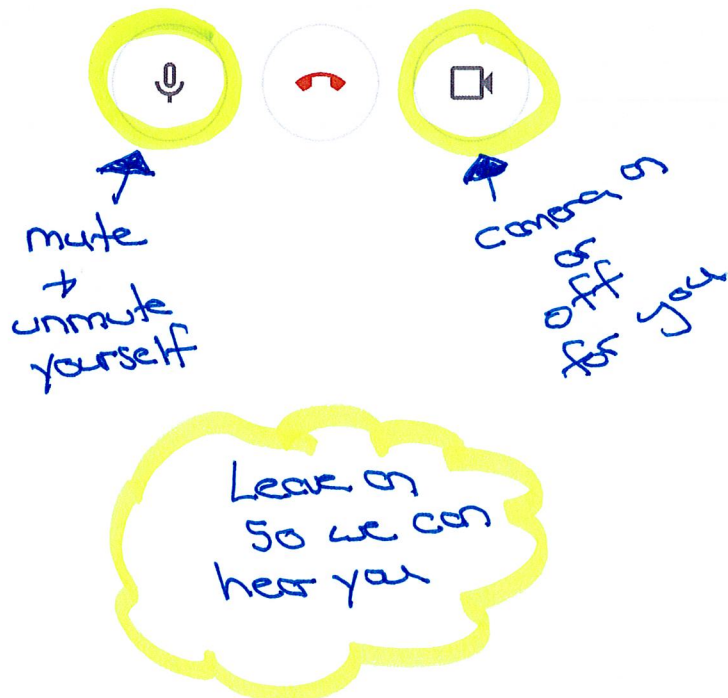 mute
+
unmute
yourself
camera on
or
off
for you
Leave on
so we can
hear you